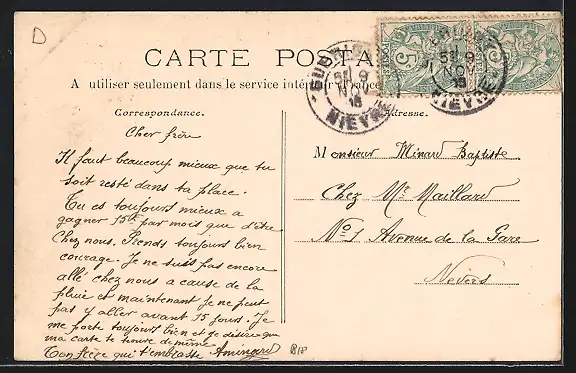 D
CARTE POSTA
A utiliser seulement dans le service intérieur
Correspondance.
Cher frère
Il faut beaucoup mieux que tu
soit resté dans ta place.
Tu es toujours mieux a
gagner 15f par mois que d'être
Chez nous. Prends toujours bien
courage. Je ne suis pas encore
allé chez nous a cause de la
pluie et maintenant je ne peut
pas y aller avant 15 jours. Je
me porte toujours bien et je désire que
ma carte te trouve de même
Ton frère qui t'embrasse
NIEVRE
NIEVRE
Adresse.
Monsieur Minard Baptiste
Chez Mr Maillard
No 1 Avenue de la Gare
Nevers